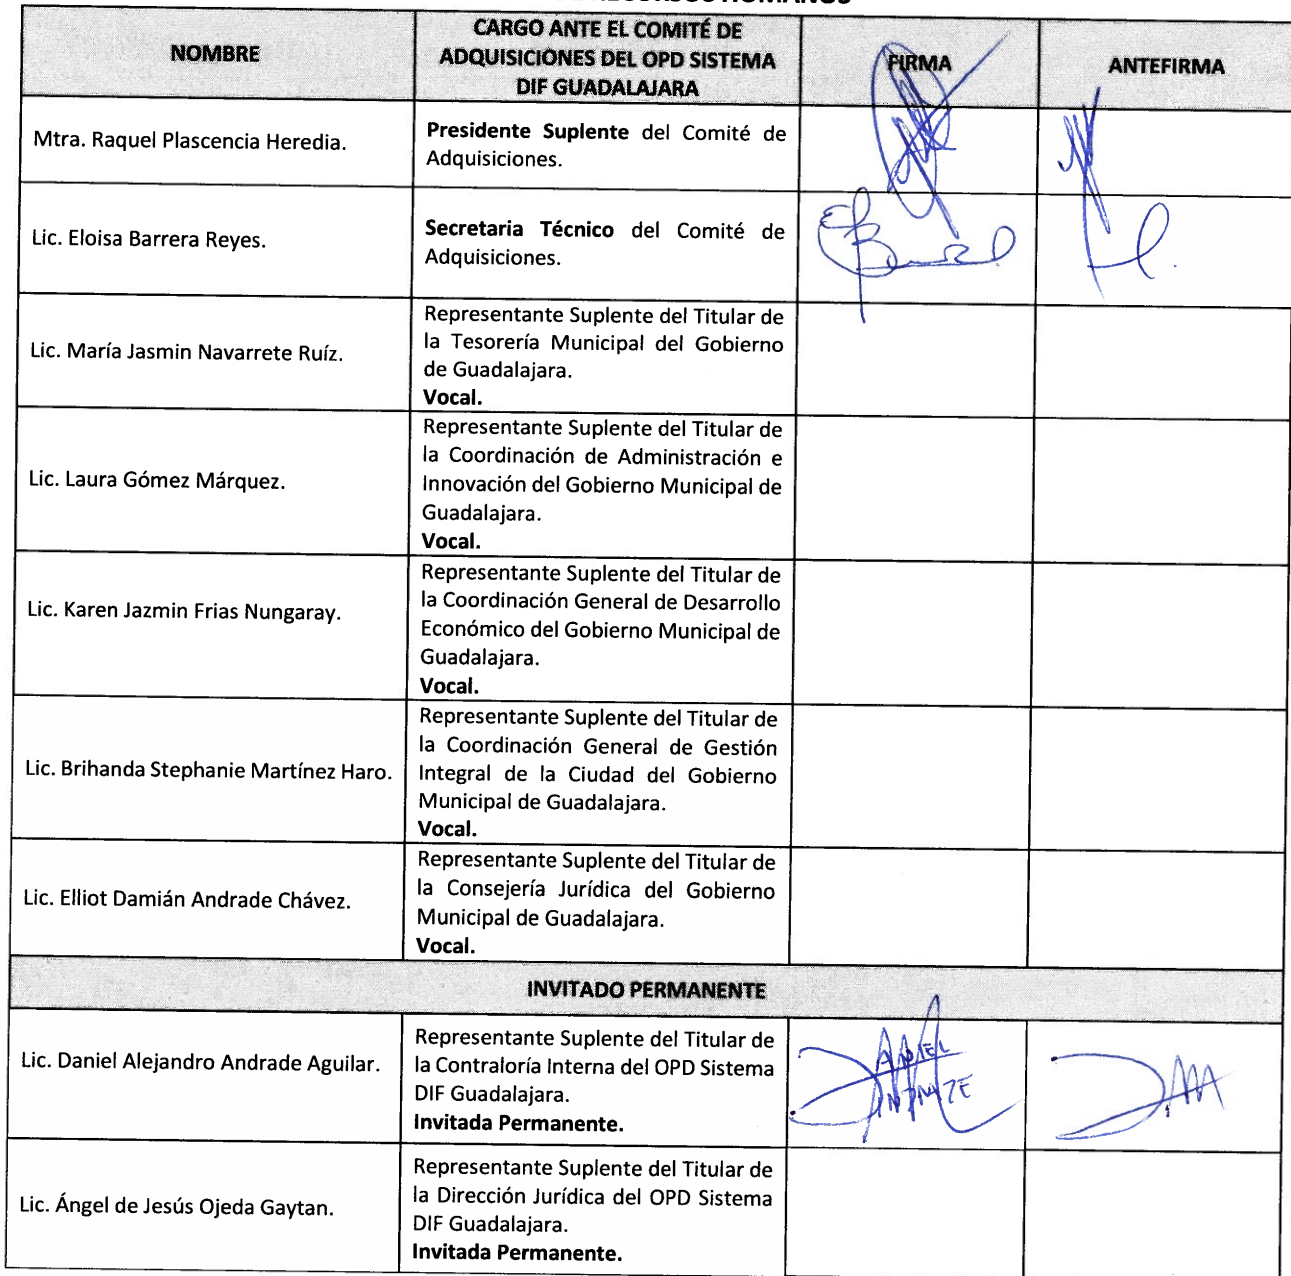 NOMBRE
CARGO ANTE EL COMITÉ DE
ADQUISICIONES DEL OPD SISTEMA
DIF GUADALAJARA
FIRMA
ANTEFIRMA
Mtra. Raquel Plascencia Heredia.
Presidente Suplente del Comité de
Adquisiciones.
Lic. Eloisa Barrera Reyes.
Secretaria Técnico del Comité de
Adquisiciones.
Lic. María Jasmin Navarrete Ruíz.
Representante Suplente del Titular de
la Tesorería Municipal del Gobierno
de Guadalajara.
Vocal.
Lic. Laura Gómez Márquez.
Representante Suplente del Titular de
la Coordinación de Administración e
Innovación del Gobierno Municipal de
Guadalajara.
Vocal.
Lic. Karen Jazmin Frias Nungaray.
Representante Suplente del Titular de
la Coordinación General de Desarrollo
Económico del Gobierno Municipal de
Guadalajara.
Vocal.
Lic. Brihanda Stephanie Martínez Haro.
Representante Suplente del Titular de
la Coordinación General de Gestión
Integral de la Ciudad del Gobierno
Municipal de Guadalajara.
Vocal.
Lic. Elliot Damián Andrade Chávez.
Representante Suplente del Titular de
la Consejería Jurídica del Gobierno
Municipal de Guadalajara.
Vocal.
INVITADO PERMANENTE
Lic. Daniel Alejandro Andrade Aguilar.
Representante Suplente del Titular de
la Contraloría Interna del OPD Sistema
DIF Guadalajara.
Invitada Permanente.
Lic. Ángel de Jesús Ojeda Gaytan.
Representante Suplente del Titular de
la Dirección Jurídica del OPD Sistema
DIF Guadalajara.
Invitada Permanente.